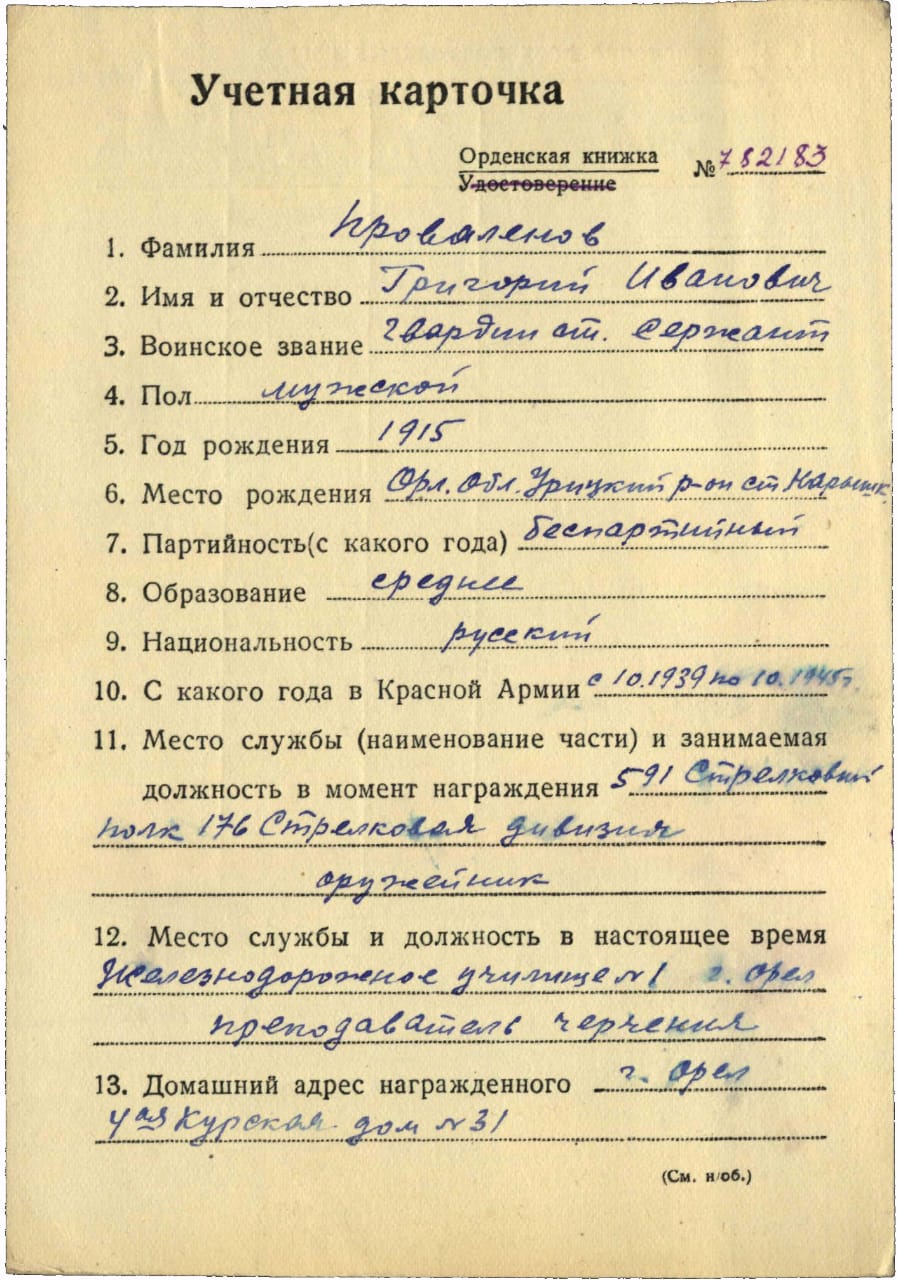 Учетная карточка
Орденская книжка № 782183
Удостоверение
1. Фамилия Проваленов
2. Имя и отчество Григорий Иванович
3. Воинское звание гвардии ст. сержант
4. Пол мужской
5. Год рождения 1915
6. Место рождения Орл. Обл. Урицкий р-он ст Нарышк.
7. Партийность(с какого года) беспартийный
8. Образование среднее
9. Национальность русский
10. С какого года в Красной Армии с 10.1939 по 10.1945г.
11. Место службы (наименование части) и занимаемая
должность в момент награждения 591 Стрелковый
полк 176 Стрелковая дивизия
оружейник
12. Место службы и должность в настоящее время
Железнодорожное училище №1 г. Орел
преподаватель черчения
13. Домашний адрес награжденного г. Орел
4ая Курская дом №31
(См. н/об.)